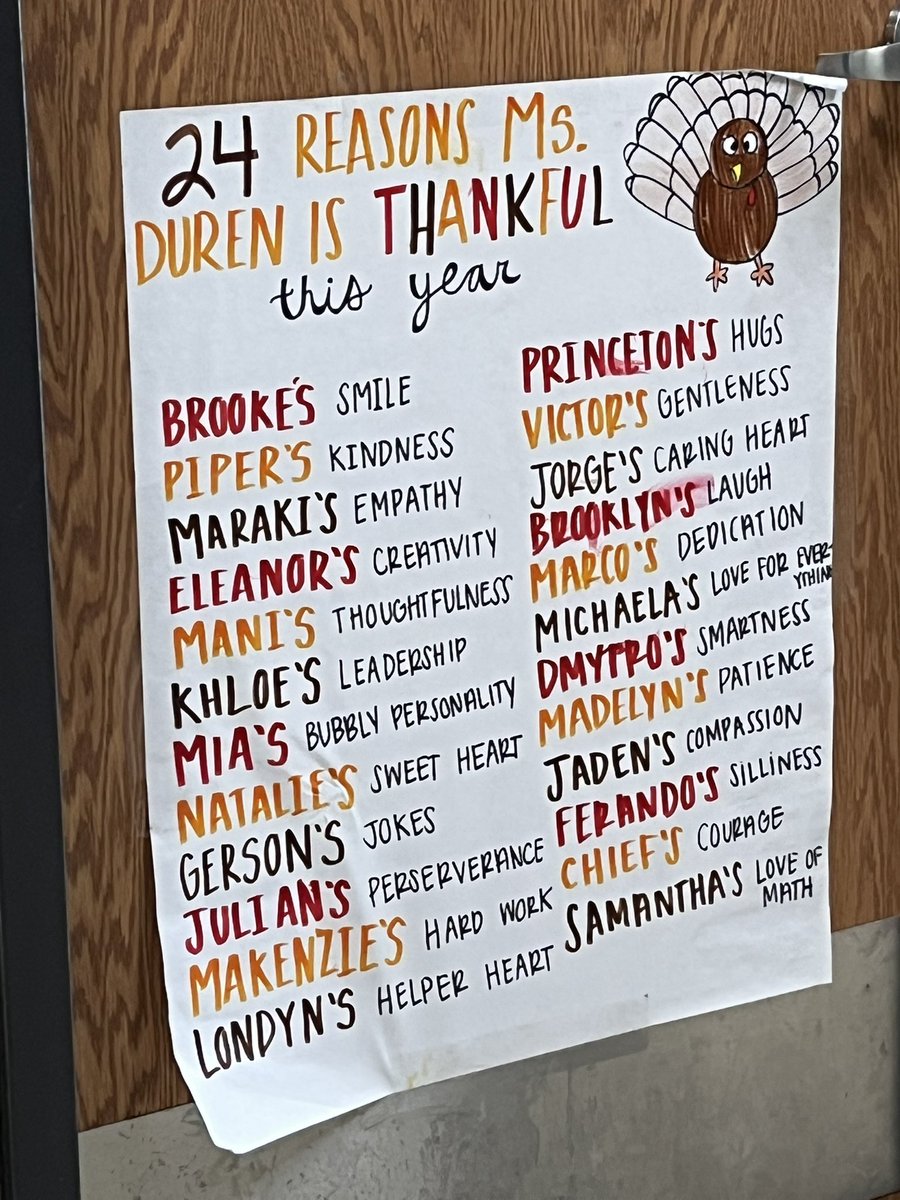 24 REASONS MS.
DUREN IS THANKFUL
this year
BROOKE'S SMILE
PIPER'S KINDNESS
MARAKI'S EMPATHY
ELEANOR'S CREATIVITY
MANI'S THOUGHTFULNESS
KHLOE'S LEADERSHIP
MIA'S BUBBLY PERSONALITY
NATALIE'S SWEET HEART
GERSON'S JOKES
JULIAN'S PERSERVERANCE
MAKENZIE'S HARD WORK
LONDYN'S HELPER HEART
PRINCETON'S HUGS
VICTOR'S GENTLENESS
JORGE'S CARING HEART
BROOKLYN'S LAUGH
MARCO'S DEDICATION
MICHAELA'S LOVE FOR EVER-
YTHING
DMYTRO'S SMARTNESS
MADELYN'S PATIENCE
JADEN'S COMPASSION
FERANDO'S SILLINESS
CHIEF'S COURAGE
SAMANTHA'S LOVE OF
MATH